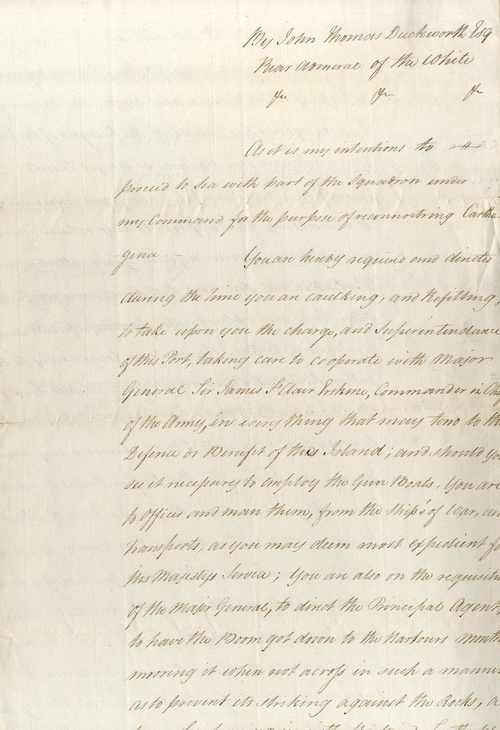 By John Thomas Duckworth Esq
Rear Admiral of the White
&c &c &c
As it is my intentions to
proceed to Sea with part of the Squadron under
my Command for the purpose of reconnoitring Cartha
gena You are hereby required and directed
during the Time you are caulking, and Refitting,
to take upon you the charge, and Superintendance
of this Port, taking care to cooperate with Major
General Sir James St Clair Erskine, Commander in Chi
of the Army, in every thing that may tend to the
Defence or Benefit of this Island; and should you
see it necessary to employ the Gun Boats. You are
to Officer and man them, from the Ships of War, and
Transports, as you may deem most expedient fo
his Majestys Service; You are also on the requisiti
of the Major General, to direct the Principal Agent,
to have the Boom got down to the Harbours Mouth
mooring it when not across in such a manner
as to prevent its striking against the Rocks, a